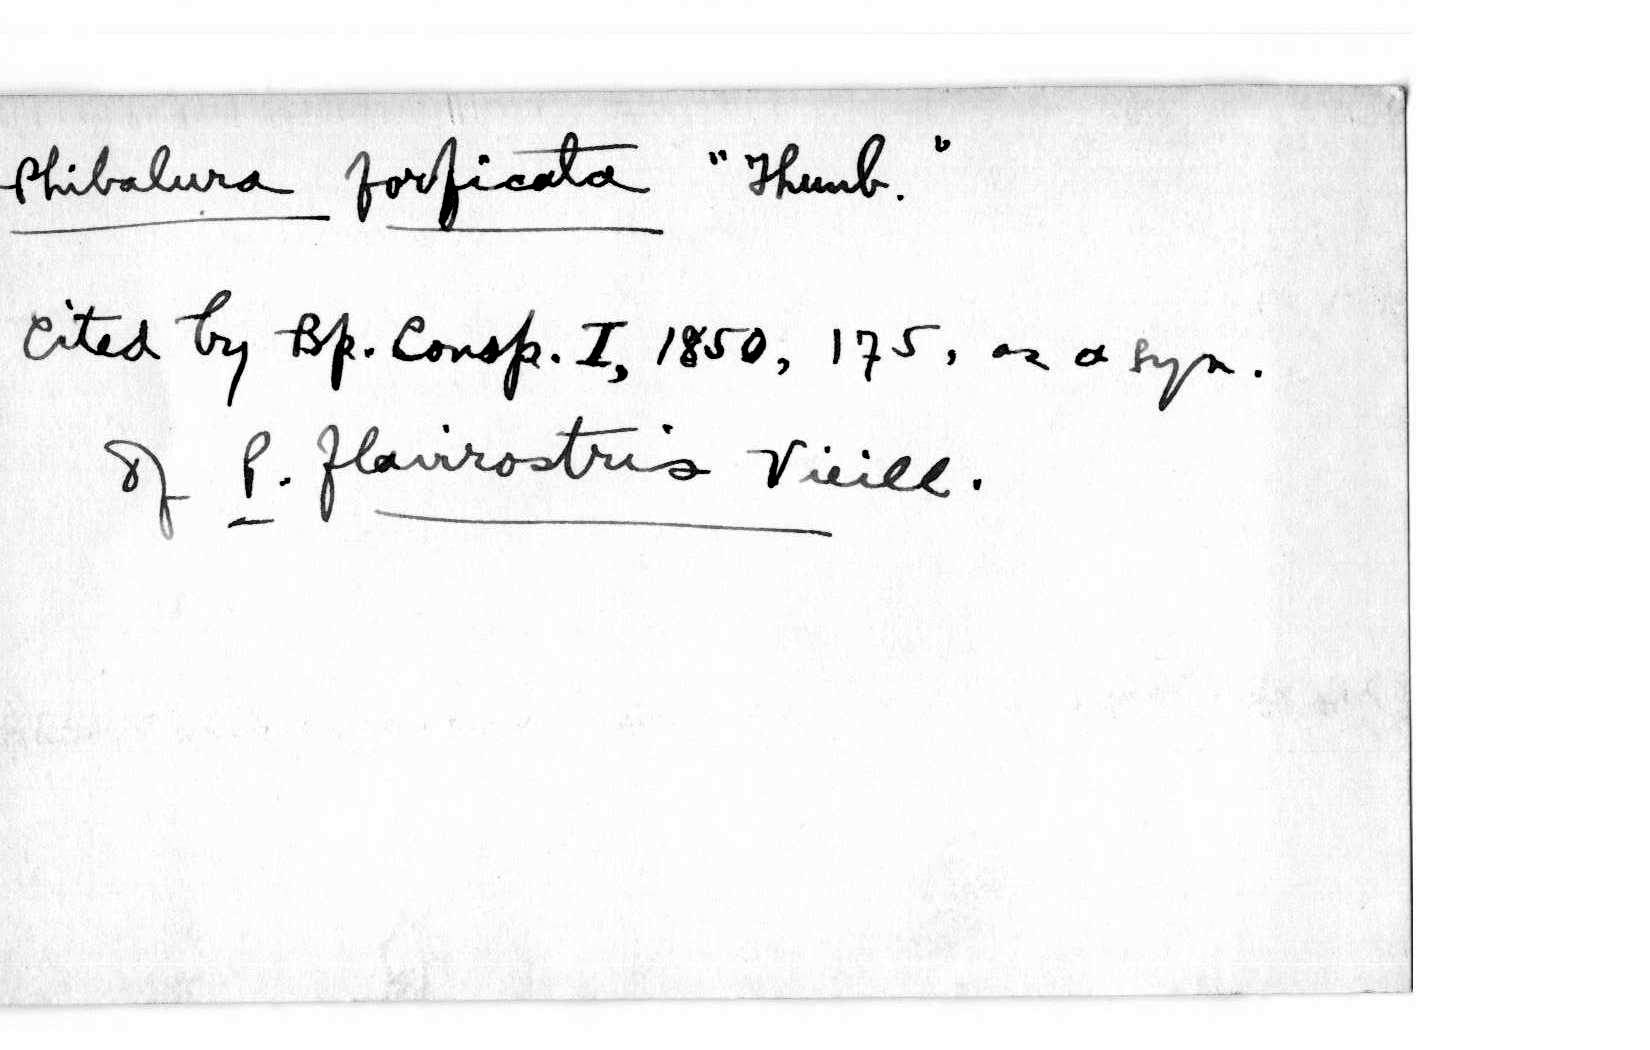 Phibalura forficata "Thunb."
Cited by Bp. Consp. I, 1850, 175, as a syn.
of P. flavirostris Vieill.